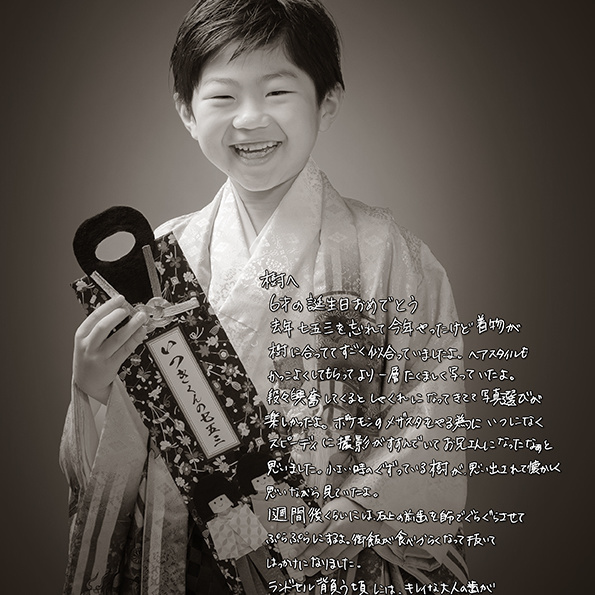 いつきくんの七五三
樹へ
6才の誕生日おめでとう
去年七五三を忘れて今年やったけど着物が
樹に合っててすごく似合っていましたよ。ヘアスタイルも
かっこよくしてもらってより一層たくましく写っていたよ。
段々興奮してくるとしゃくれになってきてて写真選びが
楽しかったよ。ポケモンのメザスタをやる為にいつになく
スピーディに撮影がすすんでいてお兄さんになったなぁと
思いました。小さい時のぐずっている樹が、思い出されて懐かしく
思いながら見ていたよ。
1週間後くらいには、右上の前歯を師でぐらぐらさせて
ぷらぷらにするよ。御飯が食べづらくなって抜いて
はっかけになりました。
ランドセル背負う頃には、キレイな大人の歯が